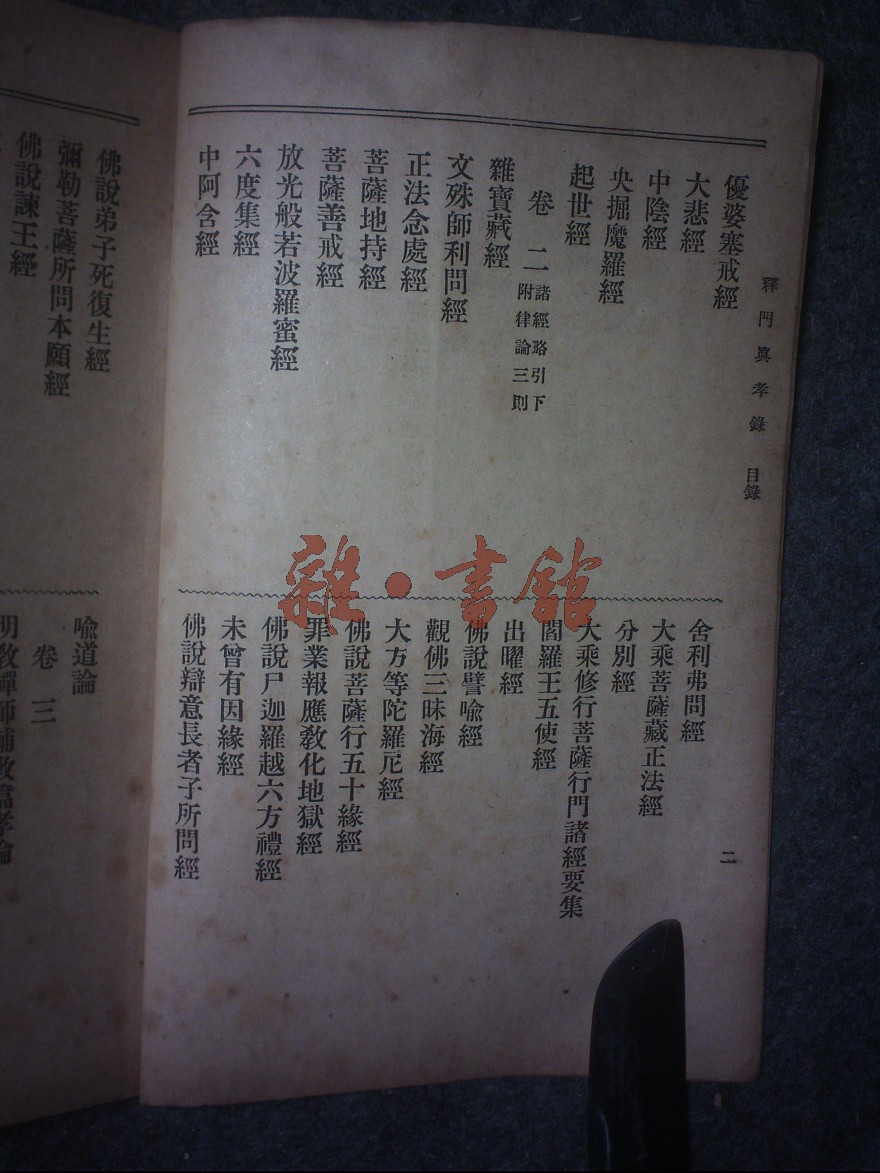 釋門眞孝錄 目錄
二
優婆塞戒經
大悲經
中陰經
央掘魔羅經
起世經
卷二 諸經略引下
附律論三則
雜寶藏經
文殊師利問經
正法念處經
菩薩地持經
菩薩善戒經
放光般若波羅蜜經
六度集經
中阿含經
舍利弗問經
大乘菩薩藏正法經
分別經
大乘修行菩薩行門諸經要集
閻羅王五使經
出曜經
佛說譬喩經
觀佛三昧海經
大方等陀羅尼經
佛說菩薩行五十緣經
罪業報應敎化地獄經
佛說尸迦羅越六方禮經
未曾有因緣經
佛說辯意長者子所問經
佛說弟子死復生經
彌勒菩薩所問本願經
佛說諫王經
喩道論
卷三
明敎禪師輔敎篇孝論
雜·書館